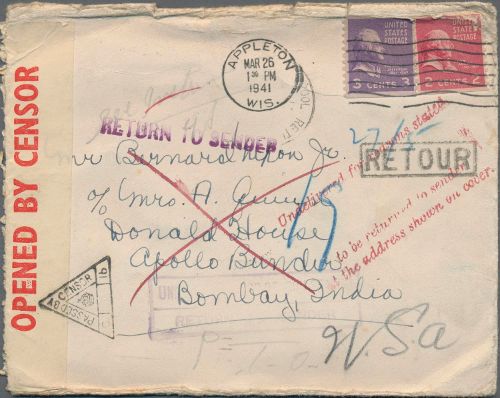 OPENED BY CENSOR
APPLETON
MAR 26
1 30 PM
1941
WIS.
UNITED STATES POSTAGE
3 CENTS 3
UNITED STATES POSTAGE
2 CENTS 2
RETURN TO SENDER
27/5
RETOUR
Undelivered for reasons stated
to be returned to sender
at the address shown on cover
Mr Bernard Jr.
c/o Mrs. A.
Donald House
Apollo Bunder
Bombay, India
U.S.A
PASSED BY CENSOR
15